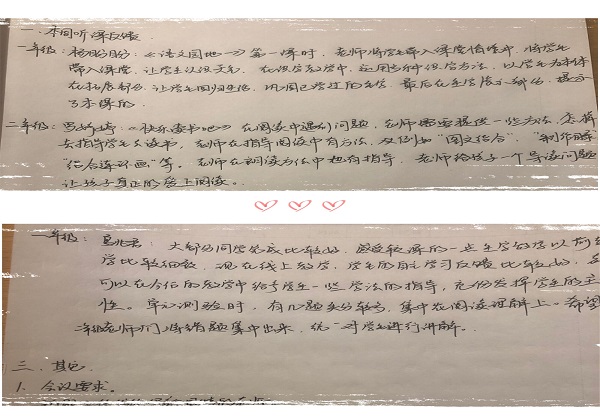 一、本周听课反馈
一年级：杨盼盼：《语文园地一》第一课时，老师将学生带入课堂情境中，将学生
带入课堂，让学生认识天气。在识字教学中，运用多种识字方法，以学生为主体
在拓展部分，让学生回归生活，巩固已学过的生字，最后在生字展示部分，提示
了本课的
二年级：《快乐读书吧》在阅读中遇到问题，老师需要提供一些方法，怎样
去指导学生去读书，老师在指导阅读中有方法，如"图文结合"，"制作
"结合课外"等。老师在朗读方法中也有指导，老师给孩子一个导读问题
让孩子真正的爱上阅读。
一年级：大部分同学完成比较好，感受较深的一些生字的学以前
学比较细致，现在线上教学，学生的自主学习反馈比较好，
可以在今后的教学中给予学生一些学法的指导，充份发挥学生的主
性。单元测验时，有几题失分较多，集中在阅读理解上。希望
年级老师们将错题集中出来，统一对学生进行讲解。
三、其它
1、会议要求。